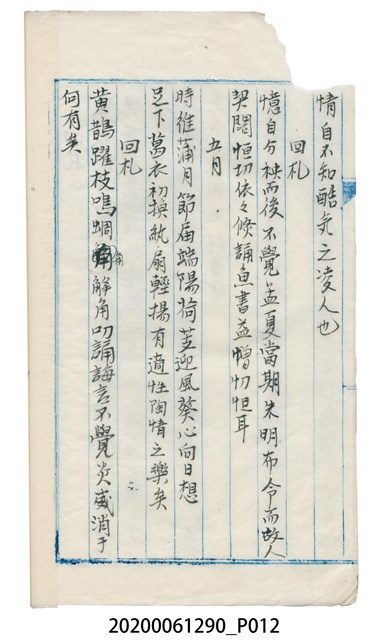 情自不知酷炎之凌人也
回札
憶自分袂而後不覺孟夏當期朱明布令而故人
契闊恒切依々倏誦魚書益憎忉怛耳
五月
時維蒲月節届端陽荷芰迎風葵心向日想
足下葛衣初換紈扇輕揚有適性陶情之樂矣
回札
黄鵲躍枝鳴蜩解角叨誦誨言不覺炎威消于
何有矣
20200061290_P012